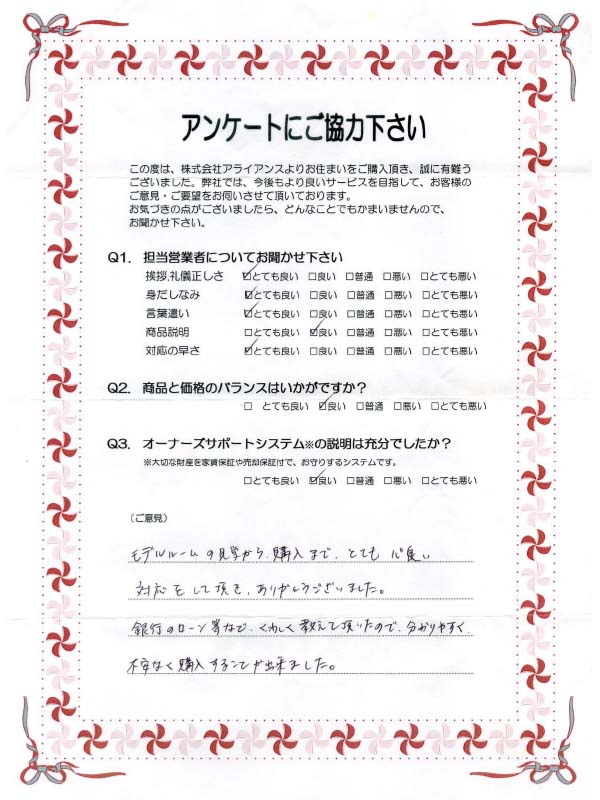 アンケートにご協力下さい
この度は、株式会社アライアンスよりお住まいをご購入頂き、誠に有難う
ございました。弊社では、今後もより良いサービスを目指して、お客様の
ご意見・ご要望をお伺いさせて頂いております。
お気づきの点がございましたら、どんなことでもかまいませんので、
お聞かせ下さい。
Q1. 担当営業者についてお聞かせ下さい
挨拶,礼儀正しさ ☑とても良い □良い □普通 □悪い □とても悪い
身だしなみ ☑とても良い □良い □普通 □悪い □とても悪い
言葉遣い ☑とても良い □良い □普通 □悪い □とても悪い
商品説明 □とても良い ☑良い □普通 □悪い □とても悪い
対応の早さ ☑とても良い □良い □普通 □悪い □とても悪い
Q2. 商品と価格のバランスはいかがですか？
□ とても良い ☑良い □普通 □悪い □とても悪い
Q3. オーナーズサポートシステム※の説明は充分でしたか？
※大切な財産を家賃保証や売却保証付で、お守りするシステムです。
□とても良い ☑良い □普通 □悪い □とても悪い
（ご意見）
モデルルームの見学から、購入まで、とても心良い
対応をして頂き、ありがとうございました。
銀行のローン等など、くわしく教えて頂いたので、分かりやすく、
不安なく購入することが出来ました。